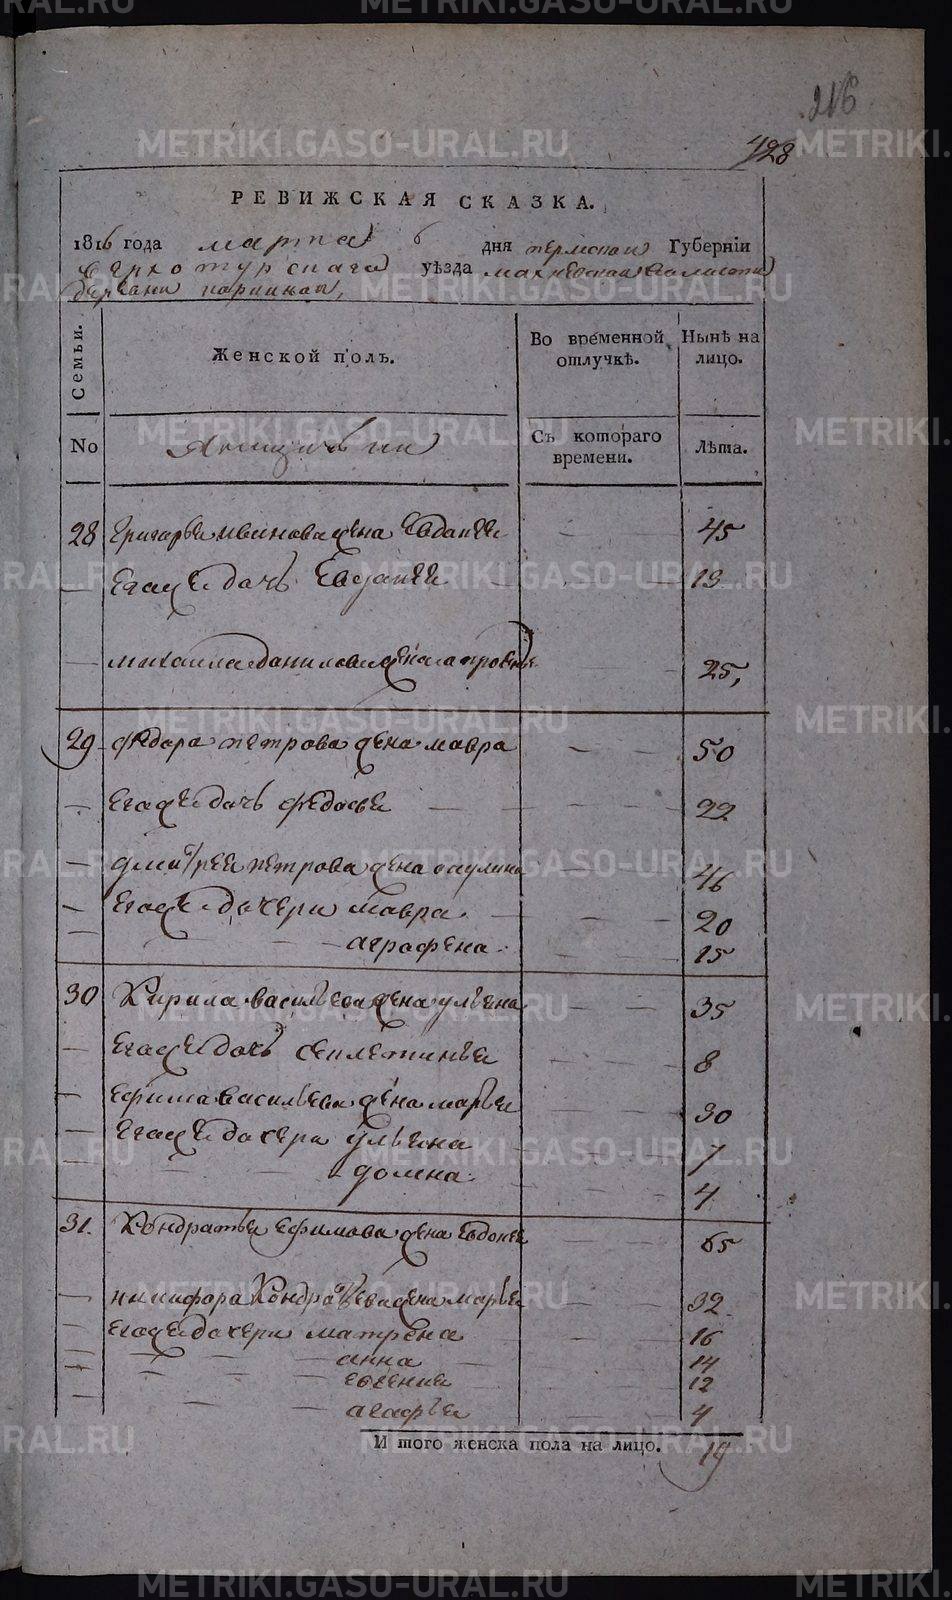 216
428
РЕВИЖСКАЯ СКАЗКА.
1816 года марта 6 дня пермской Губернїи
верхотурскага уѣзда махневская валости
деревни
Семьи.
Женской полъ.
Во временной отлучкѣ.
Нынѣ на лицо.
No
Съ котораго времени.
Лѣта.
28 григорья иванова жена Евдокея — — 45
— егожедочь Евдокея — — 19
— михаила данилова жена апросинья — — 25,
29 федора петрова жена мавра — — 50
— егожедочь федосья — — 22
— дмитрея петрова жена акулина — — 46
— егожедочери мавра — — 20
— — — аграфена — — 15
30 Кирила васильева жена ульяна — — 35
— егожедочь секлетинья — — 8
— ефима васильева жена марья — — 30
— егожедочери ульяна — — 7
— — — домна — — 4
31. Кондратья ефимова жена евдокея — — 65
— никифора Кондратьева жена марья — — 32
— егожедочери матрена — — 16
— — — анна — — 14
— — — евгения — — 12
— — — агафья — — 4
И того женска пола на лицо. 19
METRIKI.GASO-URAL.RU